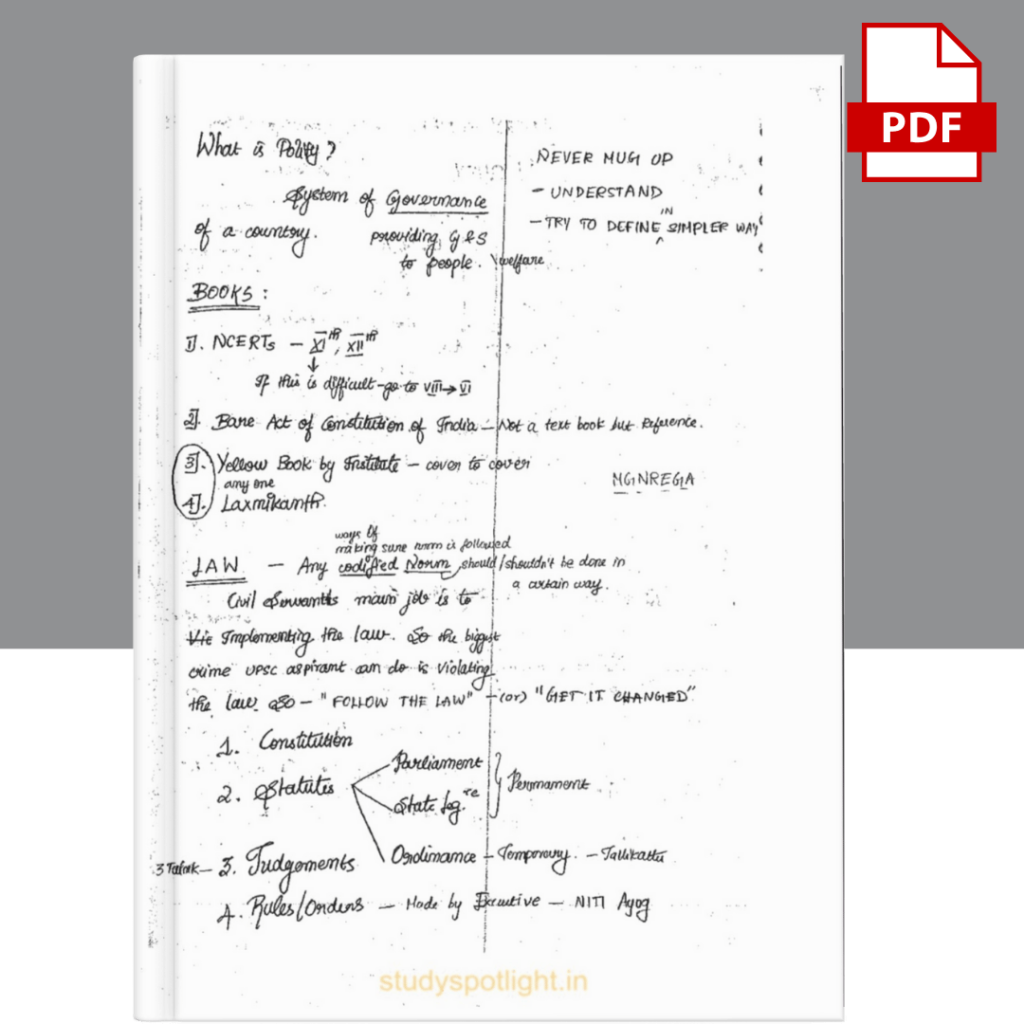 PDF
What is Polity?
System of Governance
of a country. providing G & S
to people. welfare
NEVER MUG UP
- UNDERSTAND
- TRY TO DEFINE IN SIMPLER WAY
BOOKS :
1]. NCERTs - XIth, XIIth
↓
If this is difficult - go to VIII → VI
2]. Bare Act of Constitution of India - Not a text book but Reference.
3]. Yellow Book by Institute - cover to cover
any one
4]. Laxmikanth.
MGNREGA
ways of
making sure norm is followed
LAW - Any codified Norm, should/shouldn't be done in
a certain way.
Civil Servants main job is to
Vie Implementing the law. So the biggest
crime UPSC aspirant can do is violating
the law so - "FOLLOW THE LAW" - (or) "GET IT CHANGED"
1. Constitution
2. Statutes
Parliament
State Leg.re
} Permanent
Ordinance - Temporary. -
3 Talak - 3. Judgements
4. Rules/Orders - Made by Executive - NITI Ayog
studyspotlight.in